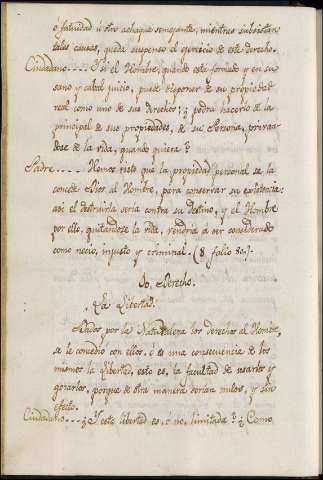 ó fatuidad ú otro achaque semejante; mientras subsistan
tales causas, queda suspenso el ejercicio de este derecho.
Ciudadano.... Y si el Hombre, quando está formado y en su
sano y cabal juicio, puede disponer de su propiedad
real como uno de sus derechos: ¿podrá hacerlo de la
principal de sus propiedades, de su Persona, privan-
dose de la vida, quando quiera?
Padre..... Hemos visto que la propiedad personal se la
concede Dios al Hombre, para conservar su existencia:
asi el destruirla sería contra su destino, y el Hombre
por ello, quitandose la vida, vendria á ser considerado
como necio, injusto y criminal. (8 folio 80.)
3o. Derecho.
La Libertad.
Dados por la Naturaleza los derechos al Hombre,
se le concedio con ellos, ó es una consecuencia de los
mismos la Libertad, esto es, la facultad de usarlos y
gozarlos, porque de otra manera serian nulos, y sin
efecto.
Ciudadano.... ¿Y esta libertad es, ó no, limitada? ¿Como